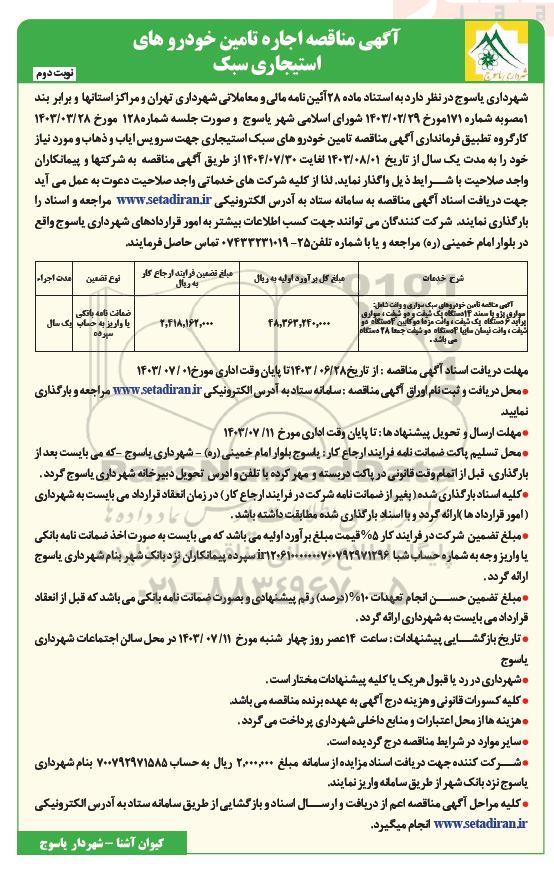 آگهی مناقصه اجاره تامین خودرو های
استیجاری سبک
شهرداری یاسوج
نوبت دوم
شهرداری یاسوج در نظر دارد به استناد ماده ۲۸ آئین نامه مالی و معاملاتی شهرداری تهران و مراکز استانها و برابر بند
۱مصوبه شماره ۱۷۱مورخ ۱۴۰۳/۰۲/۲۹ شورای اسلامی شهر یاسوج و صورت جلسه شماره۱۲۸ مورخ ۱۴۰۳/۰۳/۲۸
کارگروه تطبیق فرمانداری آگهی مناقصه تامین خودرو های سبک استیجاری جهت سرویس ایاب و ذهاب و مورد نیاز
خود را به مدت یک سال از تاریخ ۱۴۰۳/۰۸/۰۱ لغایت ۱۴۰۴/۰۷/۳۰ از طریق آگهی مناقصه به شرکتها و پیمانکاران
واجد صلاحیت با شــرایط ذیل واگذار نماید. لذا از کلیه شرکت های خدماتی واجد صلاحیت دعوت به عمل می آید
جهت دریافت اسناد آگهی مناقصه به سامانه ستاد به آدرس الکترونیکی www.setadiran.ir مراجعه و اسناد را
بارگذاری نمایند. شرکت کنندگان می توانند جهت کسب اطلاعات بیشتر به امور قراردادهای شهرداری یاسوج واقع
در بلوار امام خمینی (ره) مراجعه و یا با شماره تلفن۲۵- ۰۷۴۳۳۲۳۱۰۱۹ تماس حاصل فرمایند.
شرح خدمات | مبلغ کل برآورد اولیه به ریال | مبلغ تضمین فرایند ارجاع کار به ریال | نوع تضمین | مدت اجراء
آگهی مناقصه تامین خودروهای سبک سواری و وانت شامل:
سواری پژو یا سمند ۱۴دستگاه یک شیفت و دو شیفت ، سواری
پراید ۶ دستگاه یک شیفت ، وانت مزدا دوکابین ۴دستگاه دو
شیفت ، وانت نیسان سایپا ۴دستگاه دو شیفت جمعا ۲۸ دستگاه
می باشد .
۴۸,۳۶۳,۲۴۰,۰۰۰
۲,۴۱۸,۱۶۲,۰۰۰
ضمانت نامه بانکی
یا واریز به حساب
سپرده
یک سال
مهلت دریافت اسناد آگهی مناقصه : از تاریخ۱۴۰۳/۰۶/۲۸ تا پایان وقت اداری مورخ۰۱/ ۰۷/ ۱۴۰۳
● محل دریافت و ثبت نام اوراق آگهی مناقصه : سامانه ستاد به آدرس الکترونیکی www.setadiran.ir مراجعه و بارگذاری
نمایید
● مهلت ارسال و تحویل پیشنهاد ها : تا پایان وقت اداری مورخ ۱۱/ ۱۴۰۳/۰۷
● محل تسلیم پاکت ضمانت نامه فرایند ارجاع کار : یاسوج بلوار امام خمینی (ره) – شهرداری یاسوج -که می بایست بعد از
بارگذاری، قبل از اتمام وقت قانونی در پاکت دربسته و مهر کرده با تلفن و ادرس تحویل دبیرخانه شهرداری یاسوج گردد .
● کلیه اسناد بارگذاری شده ( بغیر از ضمانت نامه شرکت در فرایند ارجاع کار ) در زمان انعقاد قرارداد می بایست به شهرداری
( امور قرارداد ها )ارائه گردد و با اسناد بارگذاری شده مطابقت داشته باشد .
● مبلغ تضمین شرکت در فرایند کار ۵%قیمت مبلغ برآورد اولیه می باشد که می بایست به صورت اخذ ضمانت نامه بانکی
یا واریز وجه به شماره حساب شبا سپرده پیمانکاران نزد بانک شهر بنام شهرداری یاسوج
ارائه گردد .
● مبلغ تضمین حســن انجام تعهدات ۱۰%(درصد) رقم پیشنهادی و بصورت ضمانت نامه بانکی می باشد که قبل از انعقاد
قرارداد می بایست به شهرداری ارائه گردد .
● تاریخ بازگشــایی پیشنهادات : ساعت ۱۴عصر روز چهار شنبه مورخ ۱۱/ ۰۷/ ۱۴۰۳ در محل سالن اجتماعات شهرداری
یاسوج
● شهرداری در رد یا قبول هریک یا کلیه پیشنهادات مختار است .
● کلیه کسورات قانونی و هزینه درج آگهی به عهده برنده مناقصه می باشد.
● هزینه ها از محل اعتبارات و منابع داخلی شهرداری پرداخت می گردد .
● سایر موارد در شرایط مناقصه درج گردیده است.
● شــرکت کننده جهت دریافت اسناد مزایده از سامانه مبلغ ۲,۰۰۰,۰۰۰ ریال به حساب ۷۰۰۷۹۲۹۷۱۵۸۵ بنام شهرداری
یاسوج نزد بانک شهر از طریق سامانه واریز نمایند.
● کلیه مراحل آگهی مناقصه اعم از دریافت و ارســال اسناد و بازگشایی از طریق سامانه ستاد به آدرس الکترونیکی
www.setadiran.ir انجام میگیرد.
کیوان آشنا – شهردار یاسوج